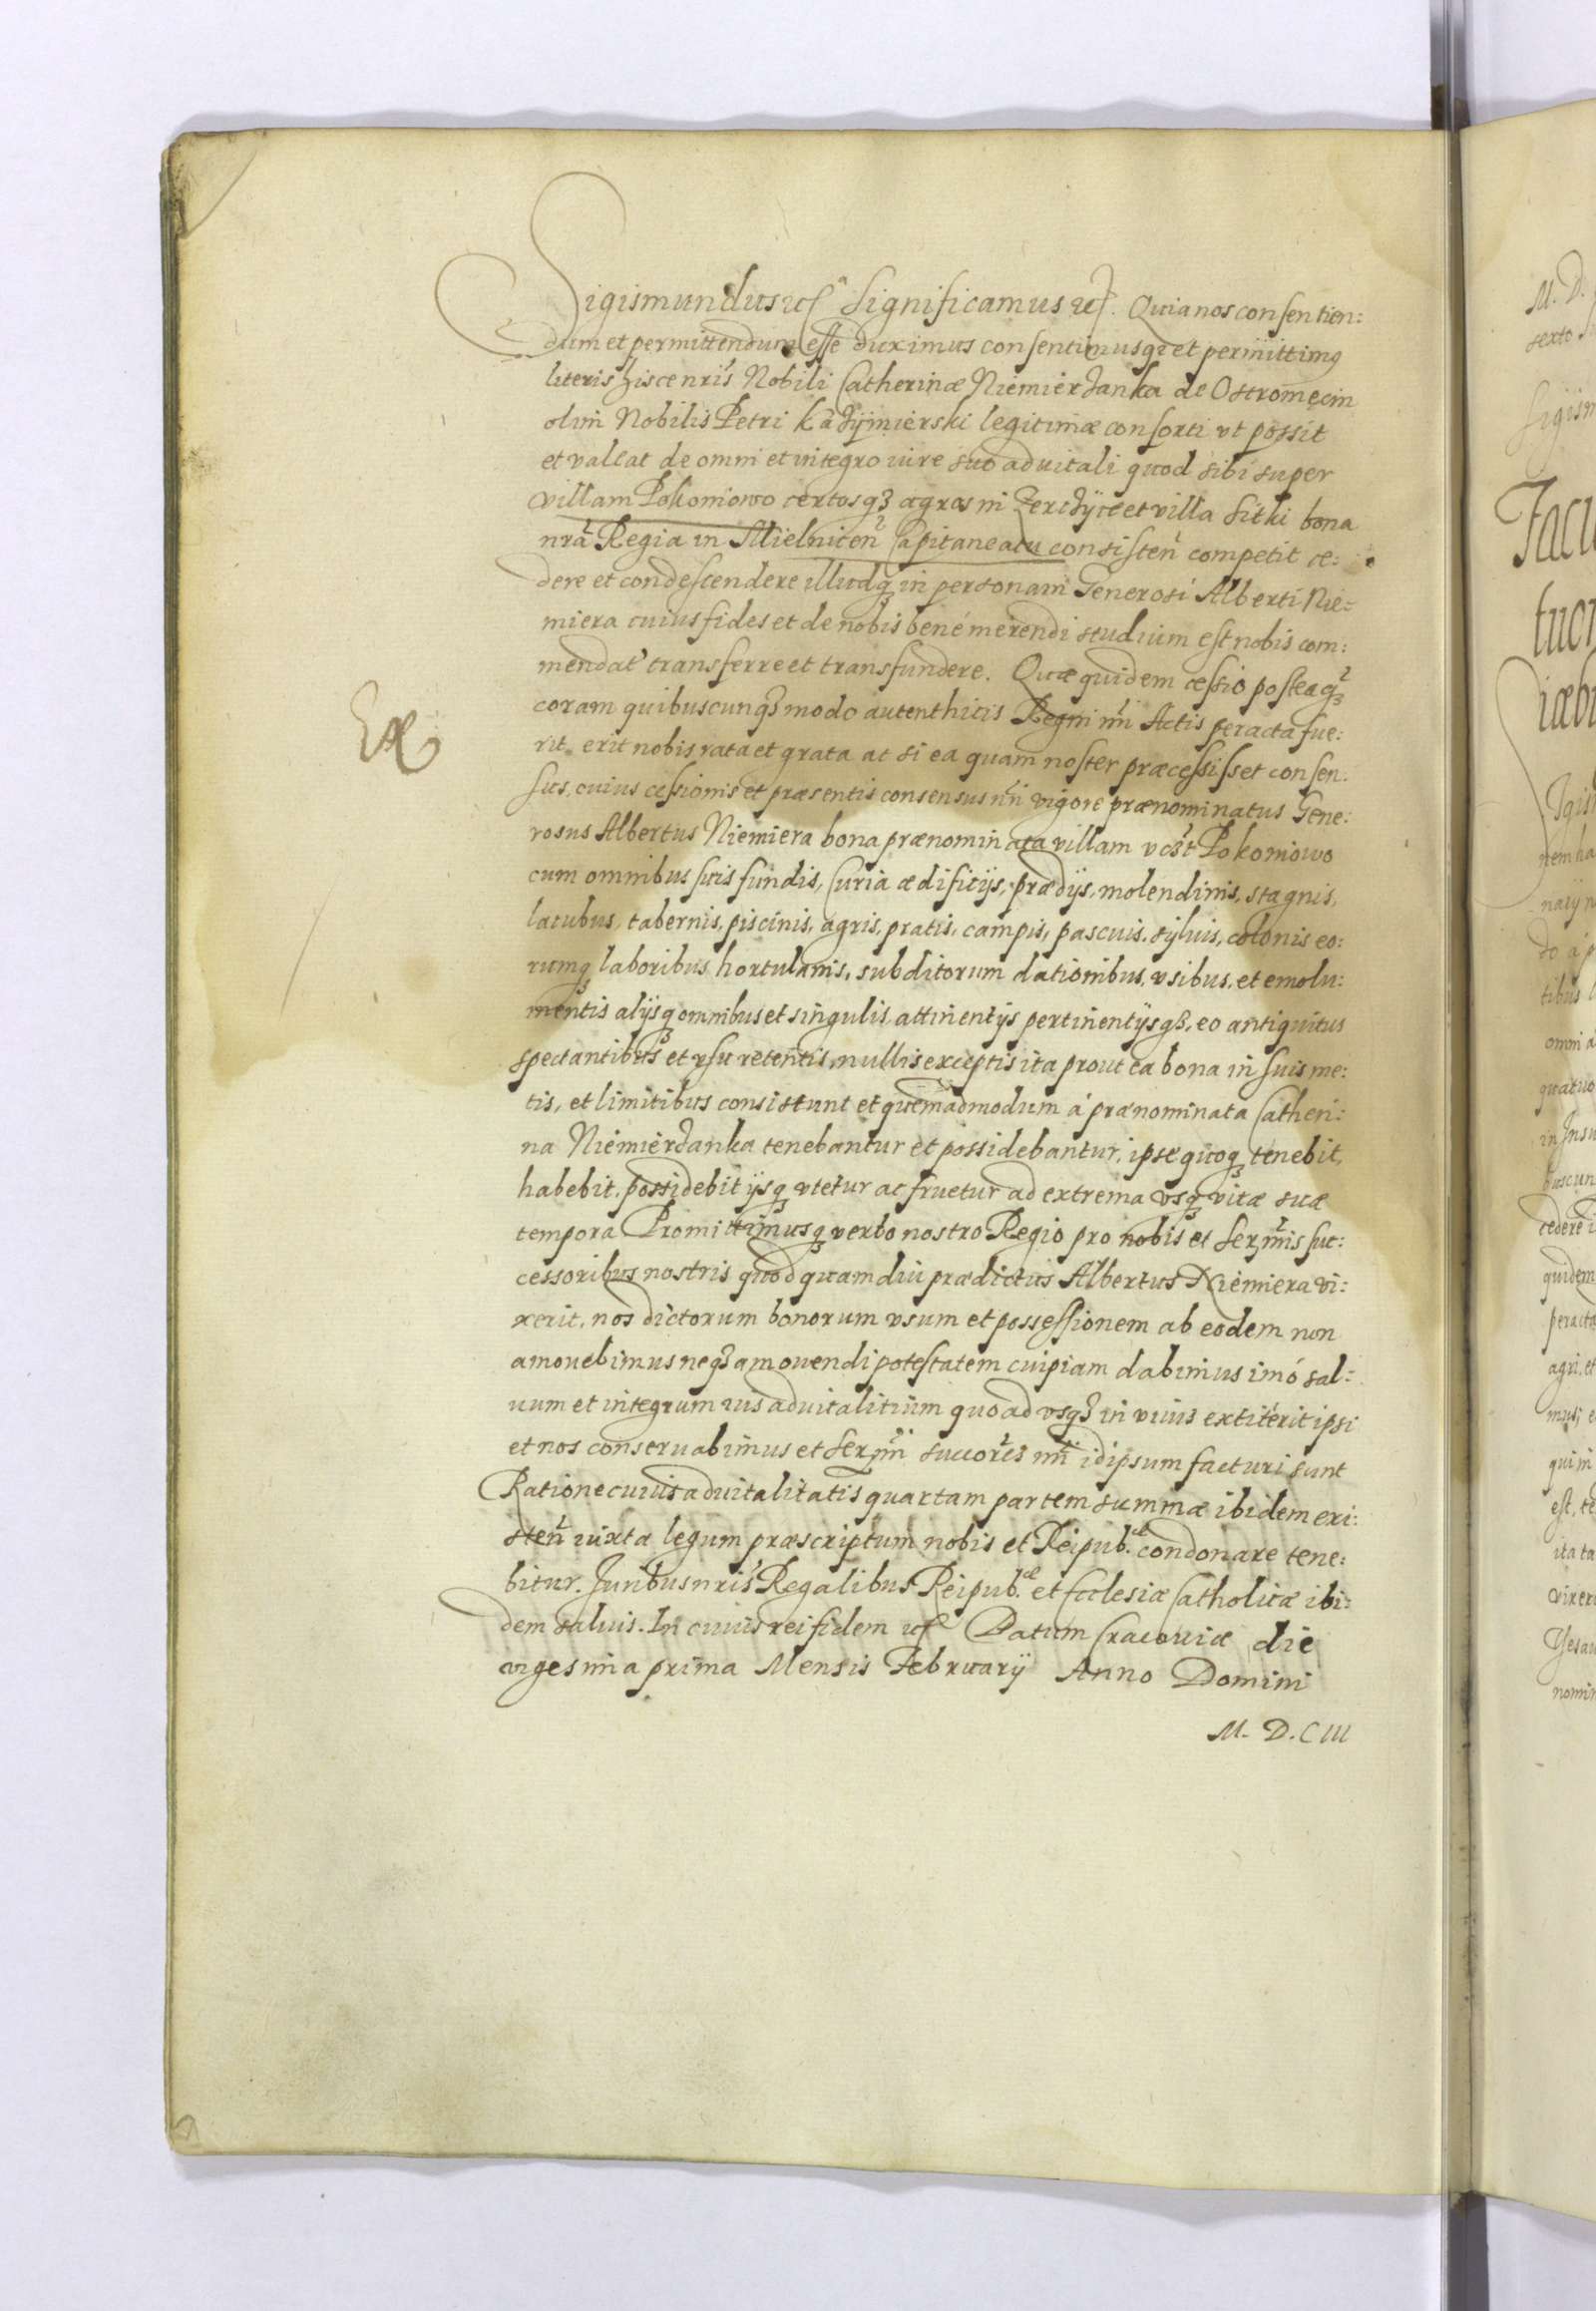 Sigismundus etc. Significamus etc. Quia nos consentien:
dum et permittendum esse duximus consentimusq₃ et permittimq
literis hisce nris Nobili Catherinæ Niemierzanka de Ostromęcin
olim Nobilis Petri Kazÿmierski legitimæ consorti vt possit
et valeat de omni et integro iure suo aduitali quod sibi super
villam Pokoniowo certosq₃ agros in et villa Sitki bona
nrã Regia in Mielnicen̄ Capitaneatu consisten̄ competit ce:
dere et condescendere illudq₃ in personam Generosi Alberti Nie:
miera cuius fides et de nobis bene merendi studium est nobis com:
mendat' transferre et transfundere. Quæ quidem cessio posteaq₃
coram quibuscunq₃ modo autenthicis Regni nri Actis peracta fue:
rit, erit nobis rata et grata ac si ea quam noster præcessisset consen:
sus, cuius cessionis et præsentis consensus nri vigore prænominatus Gene:
rosus Albertus Niemiera bona prænominata villam vcst Pokoniowo
cum omnibus suis fundis, Curia ædificijs, prædijs, molendinis, stagnis,
lacubus, tabernis, piscinis, agris, pratis, campis, pascuis, sÿluis, colonis eo:
rumq₃ laboribus hortulanis, subditorum dationibus, vsibus, et emolu:
mentis alijsq₃ omnibus et singulis attinentijs pertinentijsq₃, eo antiquitus
spectantibus et vsu retentis, nullis exceptis ita prout ea bona in suis me:
tis, et limitibus consistunt et quemadmodum á prænominata Catheri:
na Niemierzanka tenebantur et possidebantur, ipse quoq₃ tenebit,
habebit, possidebit ijsq₃ vtetur ac fruetur ad extrema vsq₃ vitæ suæ
tempora Promittimusq₃ verbo nostro Regio pro nobis et Sermis suc:
cessoribus nostris quod quamdiu prædictus Albertus Niemiera vi:
xerit, nos dictorum bonorum vsum et possessionem ab eodem non
amouebimus neq₃ amouendi potestatem cuipiam dabimus imó sal:
uum et integrum ius aduitalitium quoad vsq₃ in viuis extiterit ipsi
et nos conseruabimus et Sermi succores nri idipsum facturi sunt
Ratione cuius aduitalitatis quartam partem summæ ibidem exi:
sten̄ iuxta legum præscriptum nobis et Reipub.æ condonare tene:
bitur. Juribus nris Regalibus Reipub.æ et Ecclesiæ Catholicæ ibi:
dem saluis. In cuius rei fidem etc. Datum Cracouiæ die
vigesima prima Mensis Februarÿ Anno Domini
M. D. CIII